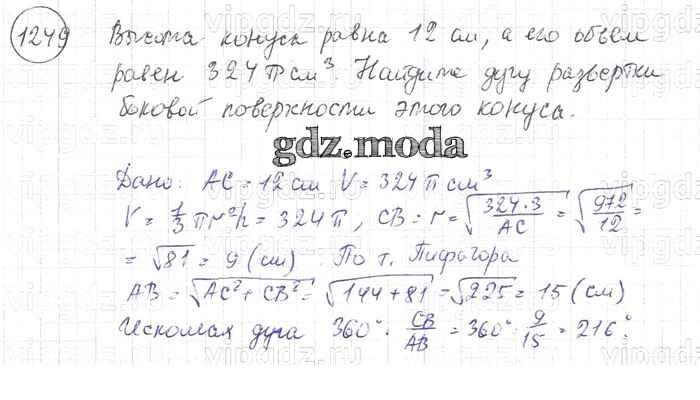 1249 Высота конуса равна 12 см, а его объем
равен 324π см³. Найдите дугу развертки
боковой поверхности этого конуса.
gdz.moda
Дано: AC = 12 см V = 324π см³
V = 1/3 πr²h = 324π, CB = r = √(324·3/AC) = √(972/12) =
= √81 = 9 (см) По т. Пифагора
AB = √(AC² + CB²) = √(144+81) = √225 = 15 (см)
Искомая дуга 360° · CB/AB = 360° · 9/15 = 216°.